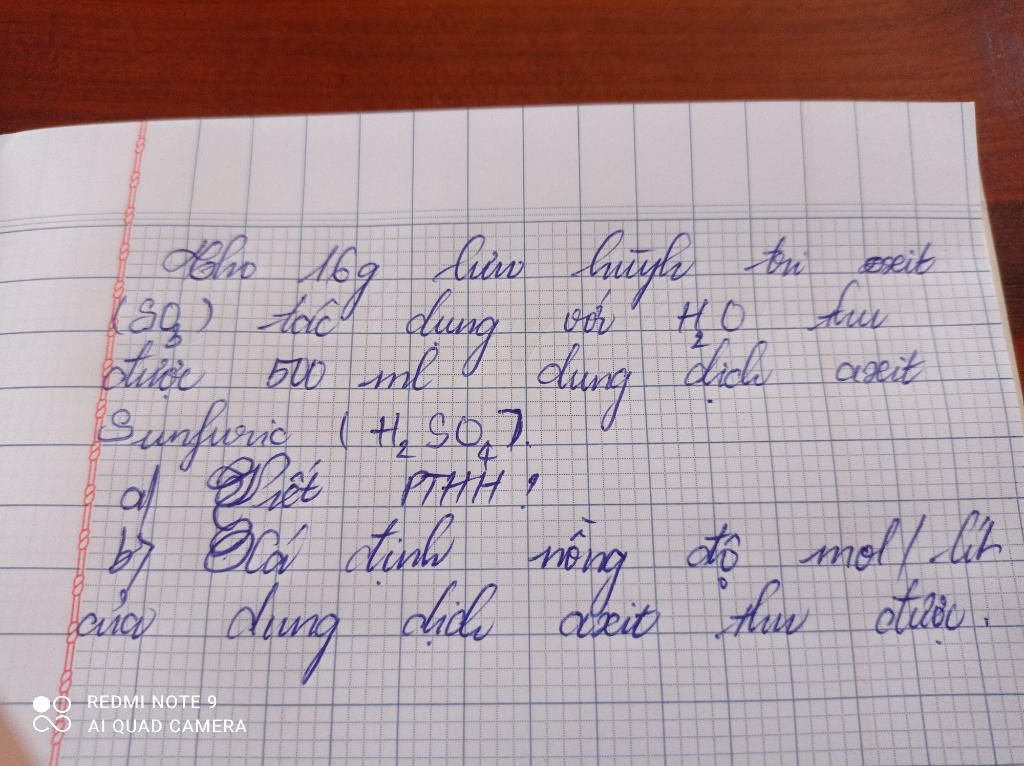 Cho 16g lưu hùynh tri oxit
(SO3) tác dụng với H2O thu
được 500 ml dung dịch axit
Sunfuric (H2SO4).
a) Viết PTHH !
b) Xá định nồng độ mol/ lít
của dung dịch axit thu được.
REDMI NOTE 9
AI QUAD CAMERA